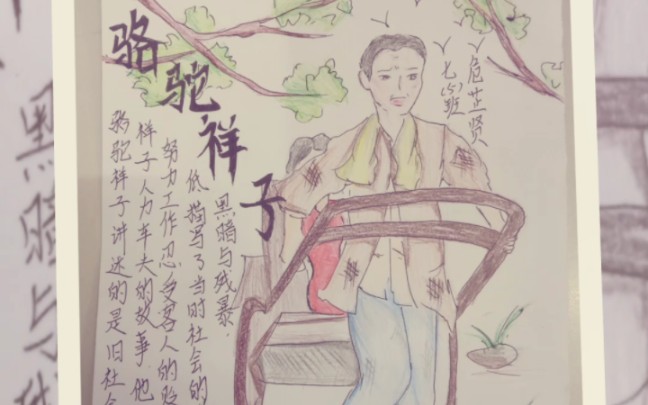 骆驼祥子
七(5)班
危芷贤
骆驼祥子讲述的是旧社会
祥子人力车夫的故事.他
努力工作忍受客人的贬
低描写了当时社会的
黑暗与残暴.